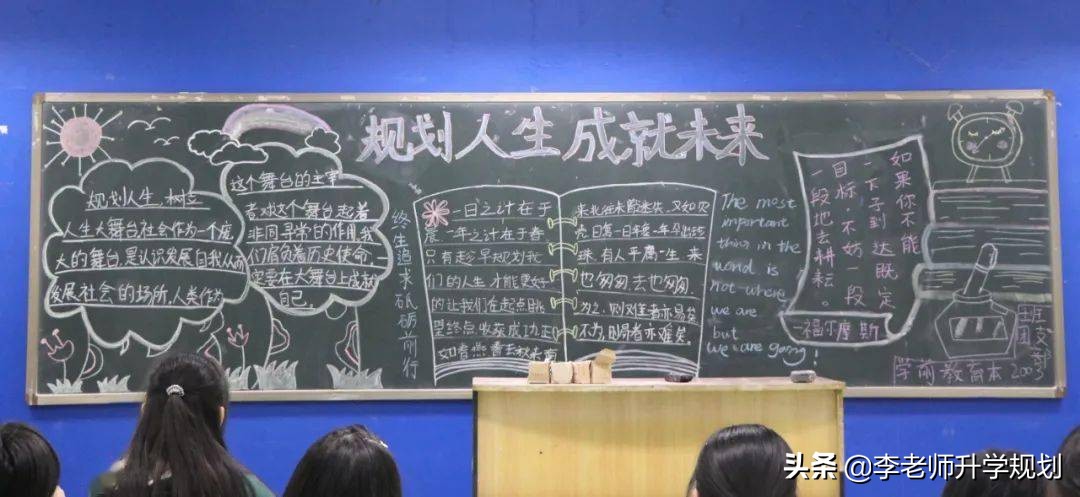 规划人生成就未来
规划人生,树立
人生大舞台社会作为一个庞
大的舞台,是认识发展自我从而
发展社会的场所,人类作为
这个舞台的主宰
者对这个舞台起着
非同寻常的作用我
们肩负着历史使命,一
定要在大舞台上成就
自己。
终生追求砥砺前行
一日之计在于
晨,一年之计在于春
只有趁早规划我
们的人生才能更好
的让我们在起点眺
望终点,收获成功正
如春燕
来北往未
有人平庸一生来
也匆匆,去也匆匆.
为之,则难者亦易矣
不为,则易者亦难矣。
The most
important
thing in the
world is
not where
we are
but
we are going!
如果你不能
一下子到达既定
目标,不妨一段
一段地去耕耘。
—福尔摩斯
团支部
学前教育本2003
头条 @李老师升学规划